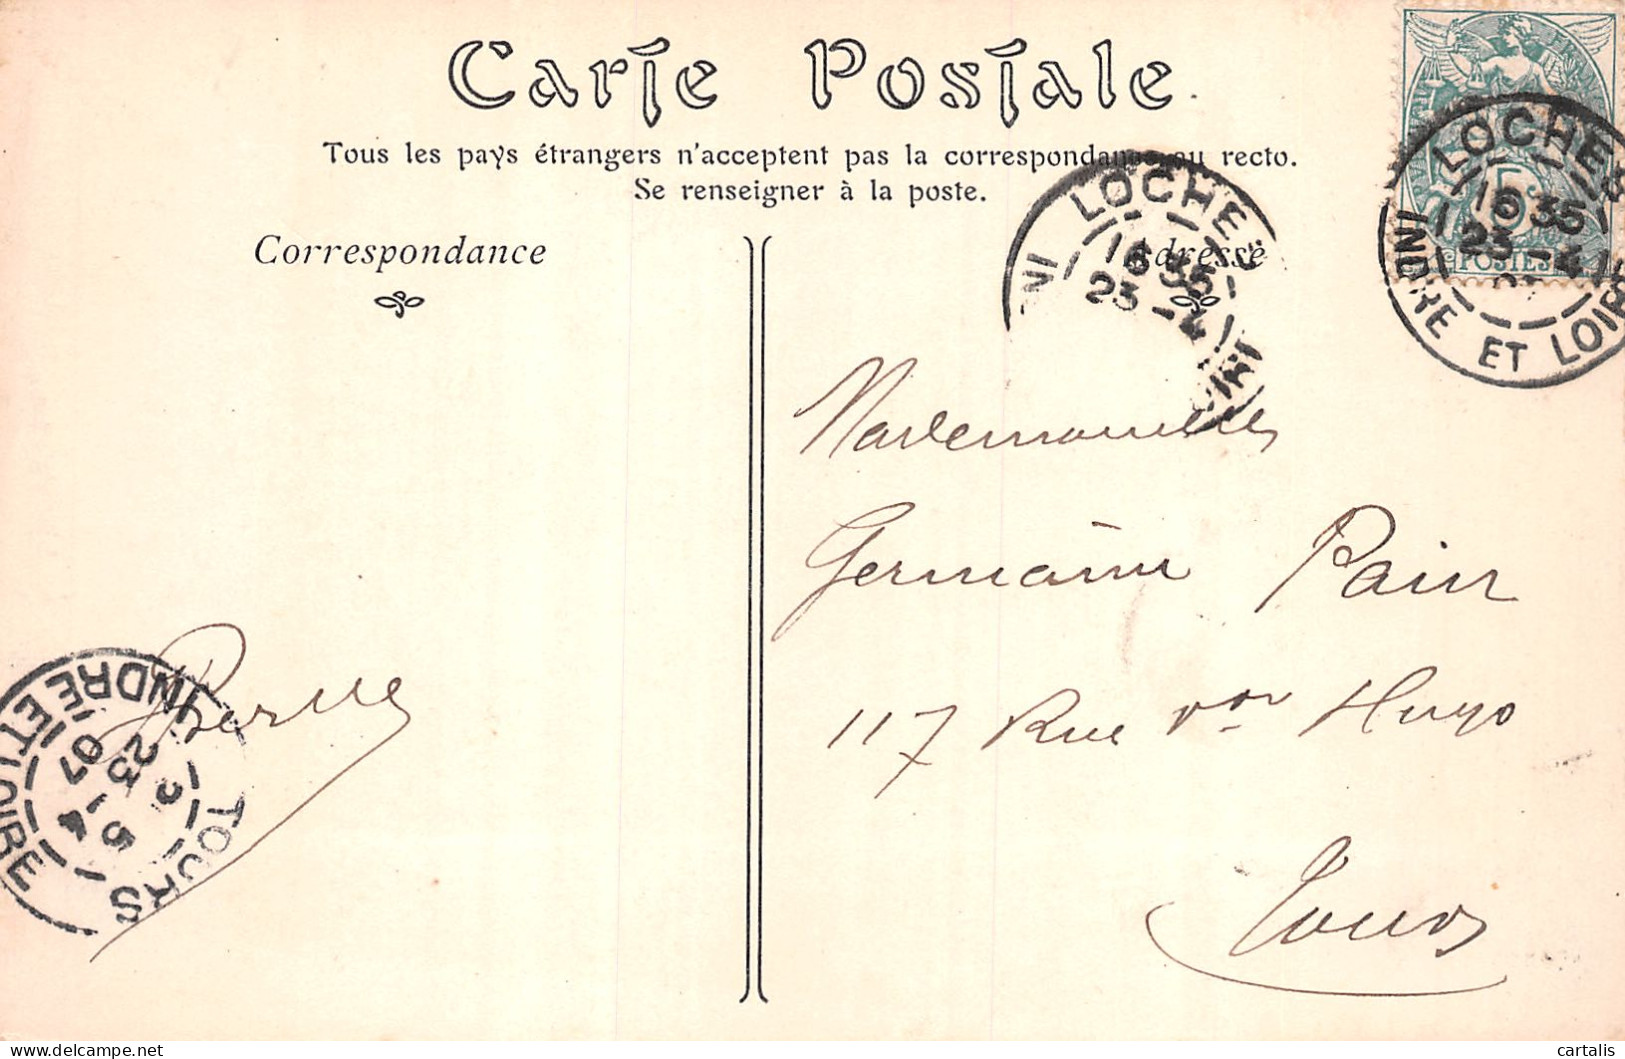 Carte Postale
Tous les pays étrangers n'acceptent pas la correspondance au recto.
Se renseigner à la poste.
Correspondance
Adresse
LOCHES
16 35
23 -4
INDRE ET LOIRE
LOCHES
16 35
23 -4
07
INDRE ET LOIRE
5c
POSTES
Mademoiselle
Germaine Pain
117 Rue Vor Hugo
Tours
TOURS
23 -4
07
INDRE ET LOIRE
cartalis